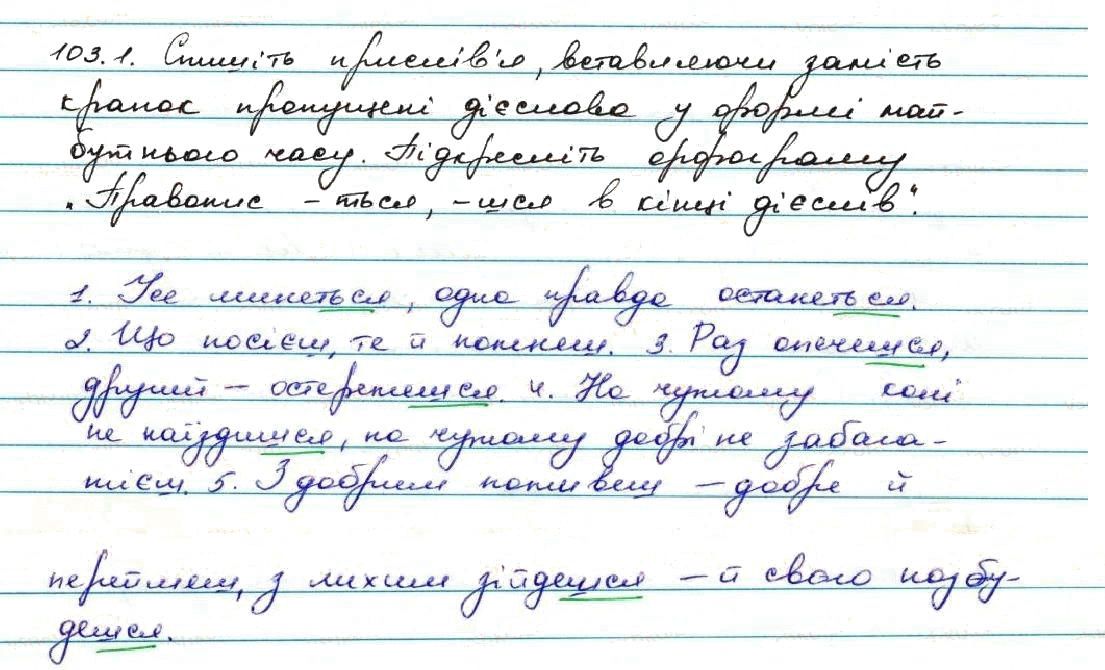 103.1. Спишіть прислів'я, вставляючи замість
крапок пропущені дієслова у формі май-
бутнього часу. Підкресліть орфограму
„Правопис -ться, -шся в кінці дієслів".
1. Усе минеться, одна правда останеться.
2. Що посієш, те й пожнеш. 3. Раз опечешся,
другий – остережешся. 4. На чужому коні
не наїздишся, на чужому добрі не забага-
тієш. 5. З добрим поживеш – добре й
переймеш, з лихим зійдешся – й свого позбу-
дешся.